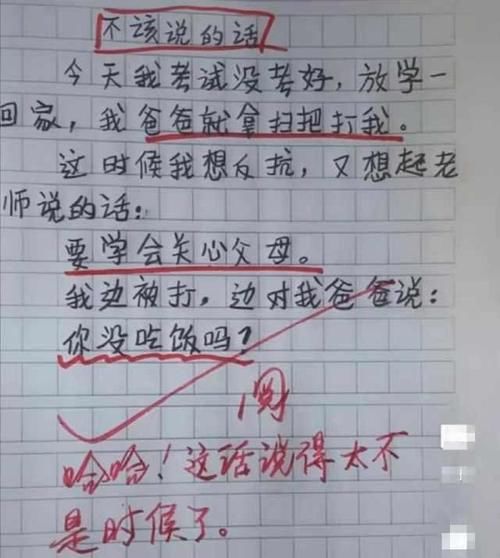 不该说的话
今天我考试没考好，放学一
回家，我爸爸就拿扫把打我。
这时候我想反抗，又想起老
师说的话：
要学会关心父母。
我边被打，边对我爸爸说：
你没吃饭吗？
阅
哈哈！这话说得太不
是时候了。